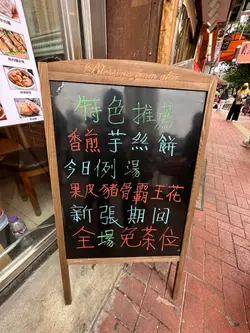 特色推薦
香煎芋絲餅
今日例湯
果皮豬骨霸王花
新張期间
全場免茶位